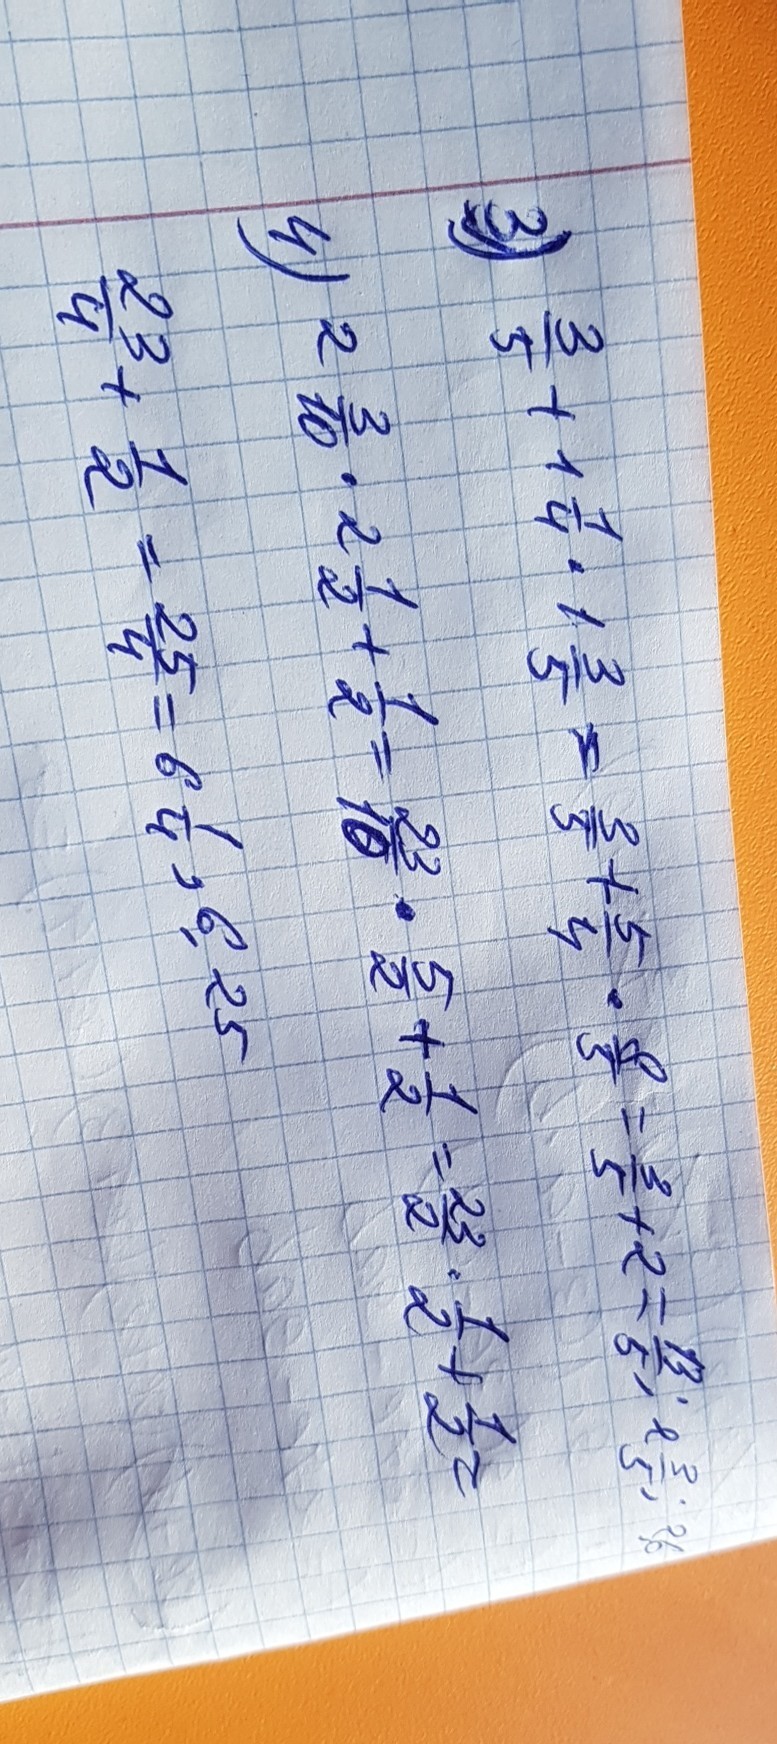 3) 3/5 + 1 1/4 · 1 3/5 = 3/5 + 5/4 · 8/5 = 3/5 + 2 = 13/5; 2 3/5; 2,6
4) 2 3/10 · 2 1/2 + 1/2 = 23/10 · 5/2 + 1/2 = 23/2 · 1/2 + 1/2 =
23/4 + 1/2 = 25/4 = 6 1/4, 6,25